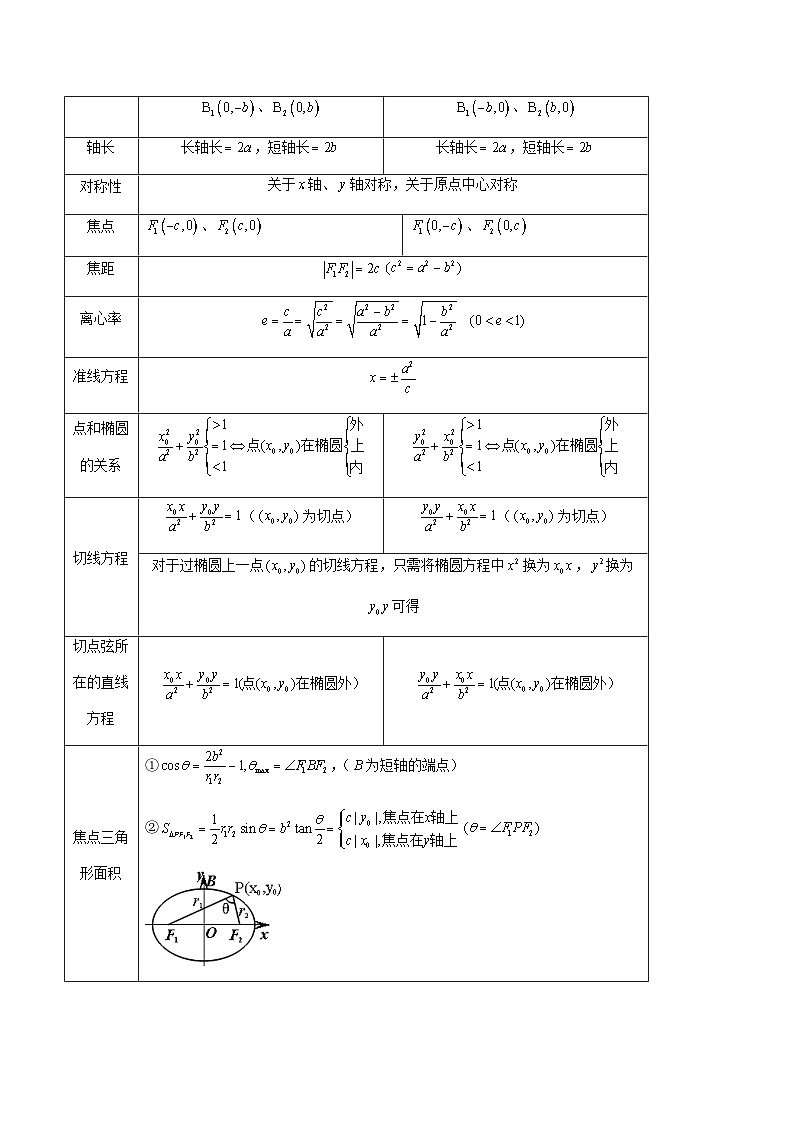 B₁(0,−b)、B₂(0,b) B₁(−b,0)、B₂(b,0)
轴长 长轴长 = 2a，短轴长 = 2b 长轴长 = 2a，短轴长 = 2b
对称性 关于 x 轴、y 轴对称，关于原点中心对称
焦点 F₁(−c,0)、F₂(c,0) F₁(0,−c)、F₂(0,c)
焦距 |F₁F₂| = 2c (c² = a² − b²)
离心率 e = c/a = √(c²/a²) = √((a² − b²)/a²) = √(1 − b²/a²) (0 < e < 1)
准线方程 x = ± a²/c
点和椭圆
的关系
x₀²/a² + y₀²/b² { >1 =1 <1 ⇔ 点(x₀,y₀)在椭圆 { 外 上 内
y₀²/a² + x₀²/b² { >1 =1 <1 ⇔ 点(x₀,y₀)在椭圆 { 外 上 内
切线方程
x₀x/a² + y₀y/b² = 1（(x₀,y₀) 为切点）
y₀y/a² + x₀x/b² = 1（(x₀,y₀) 为切点）
对于过椭圆上一点 (x₀,y₀) 的切线方程，只需将椭圆方程中 x² 换为 x₀x，y² 换为
y₀y 可得
切点弦所
在的直线
方程
x₀x/a² + y₀y/b² = 1(点(x₀,y₀)在椭圆外）
y₀y/a² + x₀x/b² = 1(点(x₀,y₀)在椭圆外）
焦点三角
形面积
①cosθ = 2b²/(r₁r₂) − 1, θmax = ∠F₁BF₂，（B 为短轴的端点）
②S△PF₁F₂ = 1/2 r₁r₂ sinθ = b² tan θ/2 = { c|y₀|,焦点在x轴上 c|x₀|,焦点在y轴上 (θ = ∠F₁PF₂)
y B
P(x₀,y₀)
r₁ θ r₂
F₁ O F₂ x